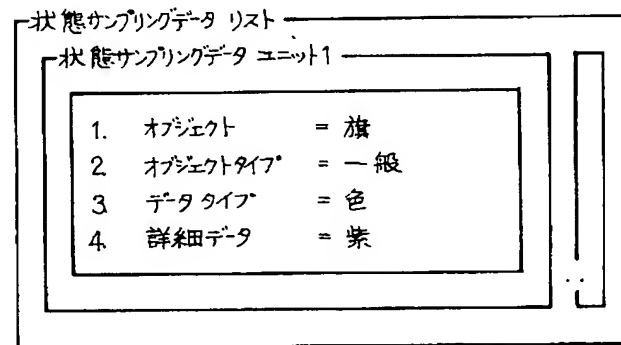 状態サンプリングデータ リスト
状態サンプリングデータ ユニット1
1. オブジェクト = 旗
2. オブジェクトタイプ = 一般
3. データタイプ = 色
4. 詳細データ = 紫